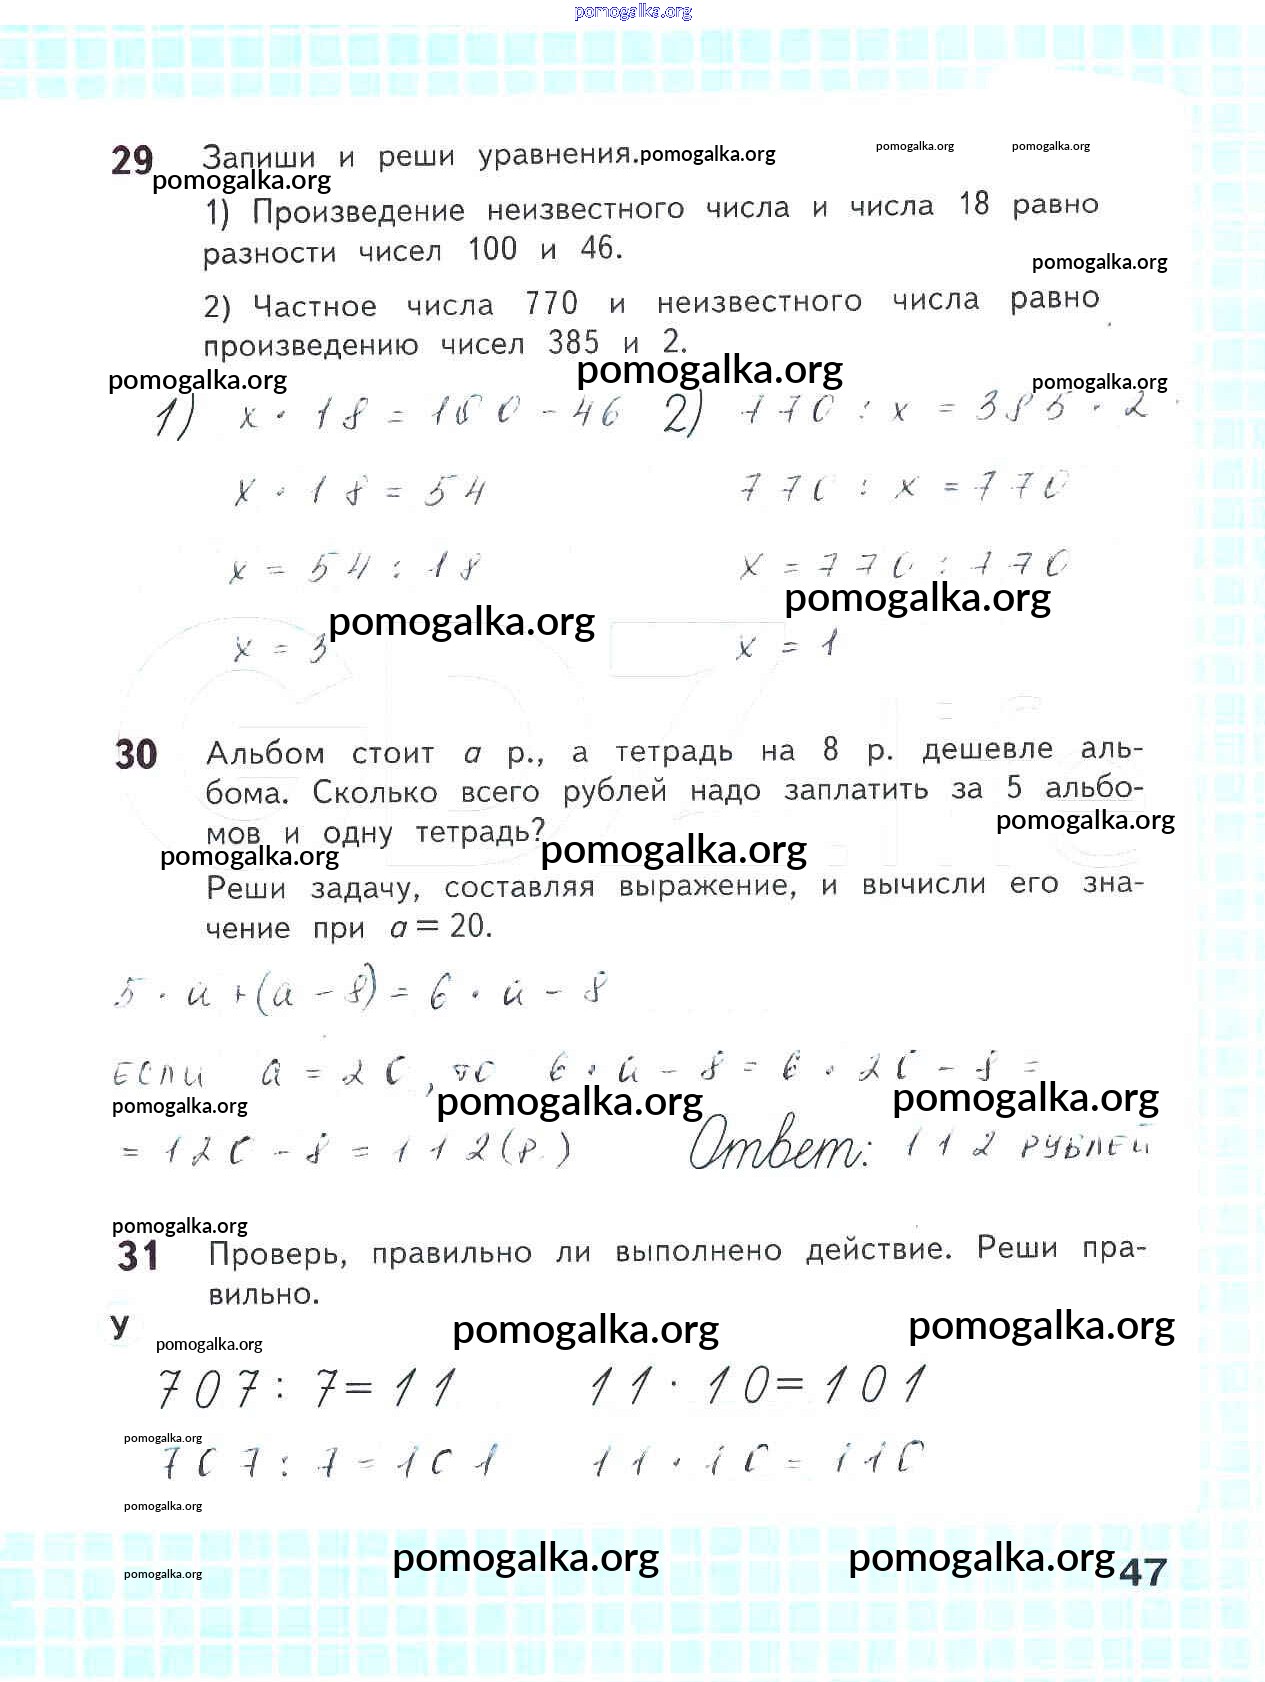 pomogalka.org
29 Запиши и реши уравнения. pomogalka.org pomogalka.org pomogalka.org
pomogalka.org
1) Произведение неизвестного числа и числа 18 равно
разности чисел 100 и 46.
pomogalka.org
2) Частное числа 770 и неизвестного числа равно
произведению чисел 385 и 2.
pomogalka.org pomogalka.org pomogalka.org
1) x · 18 = 100 - 46 2) 770 : x = 385 · 2
x · 18 = 54 770 : x = 770
x = 54 : 18 x = 770 : 770
pomogalka.org pomogalka.org
x = 3 x = 1
30 Альбом стоит a р., а тетрадь на 8 р. дешевле аль-
бома. Сколько всего рублей надо заплатить за 5 альбо-
мов и одну тетрадь? pomogalka.org
pomogalka.org pomogalka.org
Реши задачу, составляя выражение, и вычисли его зна-
чение при a = 20.
5 · a + (a - 8) = 6 · a - 8
Если a = 20, то 6 · a - 8 = 6 · 20 - 8 =
pomogalka.org pomogalka.org pomogalka.org
= 120 - 8 = 112 (р.) Ответ: 112 рублей
pomogalka.org
31 Проверь, правильно ли выполнено действие. Реши пра-
вильно.
У
pomogalka.org pomogalka.org pomogalka.org
707 : 7 = 11 11 · 10 = 101
pomogalka.org
707 : 7 = 101 11 · 10 = 110
pomogalka.org
pomogalka.org pomogalka.org pomogalka.org 47